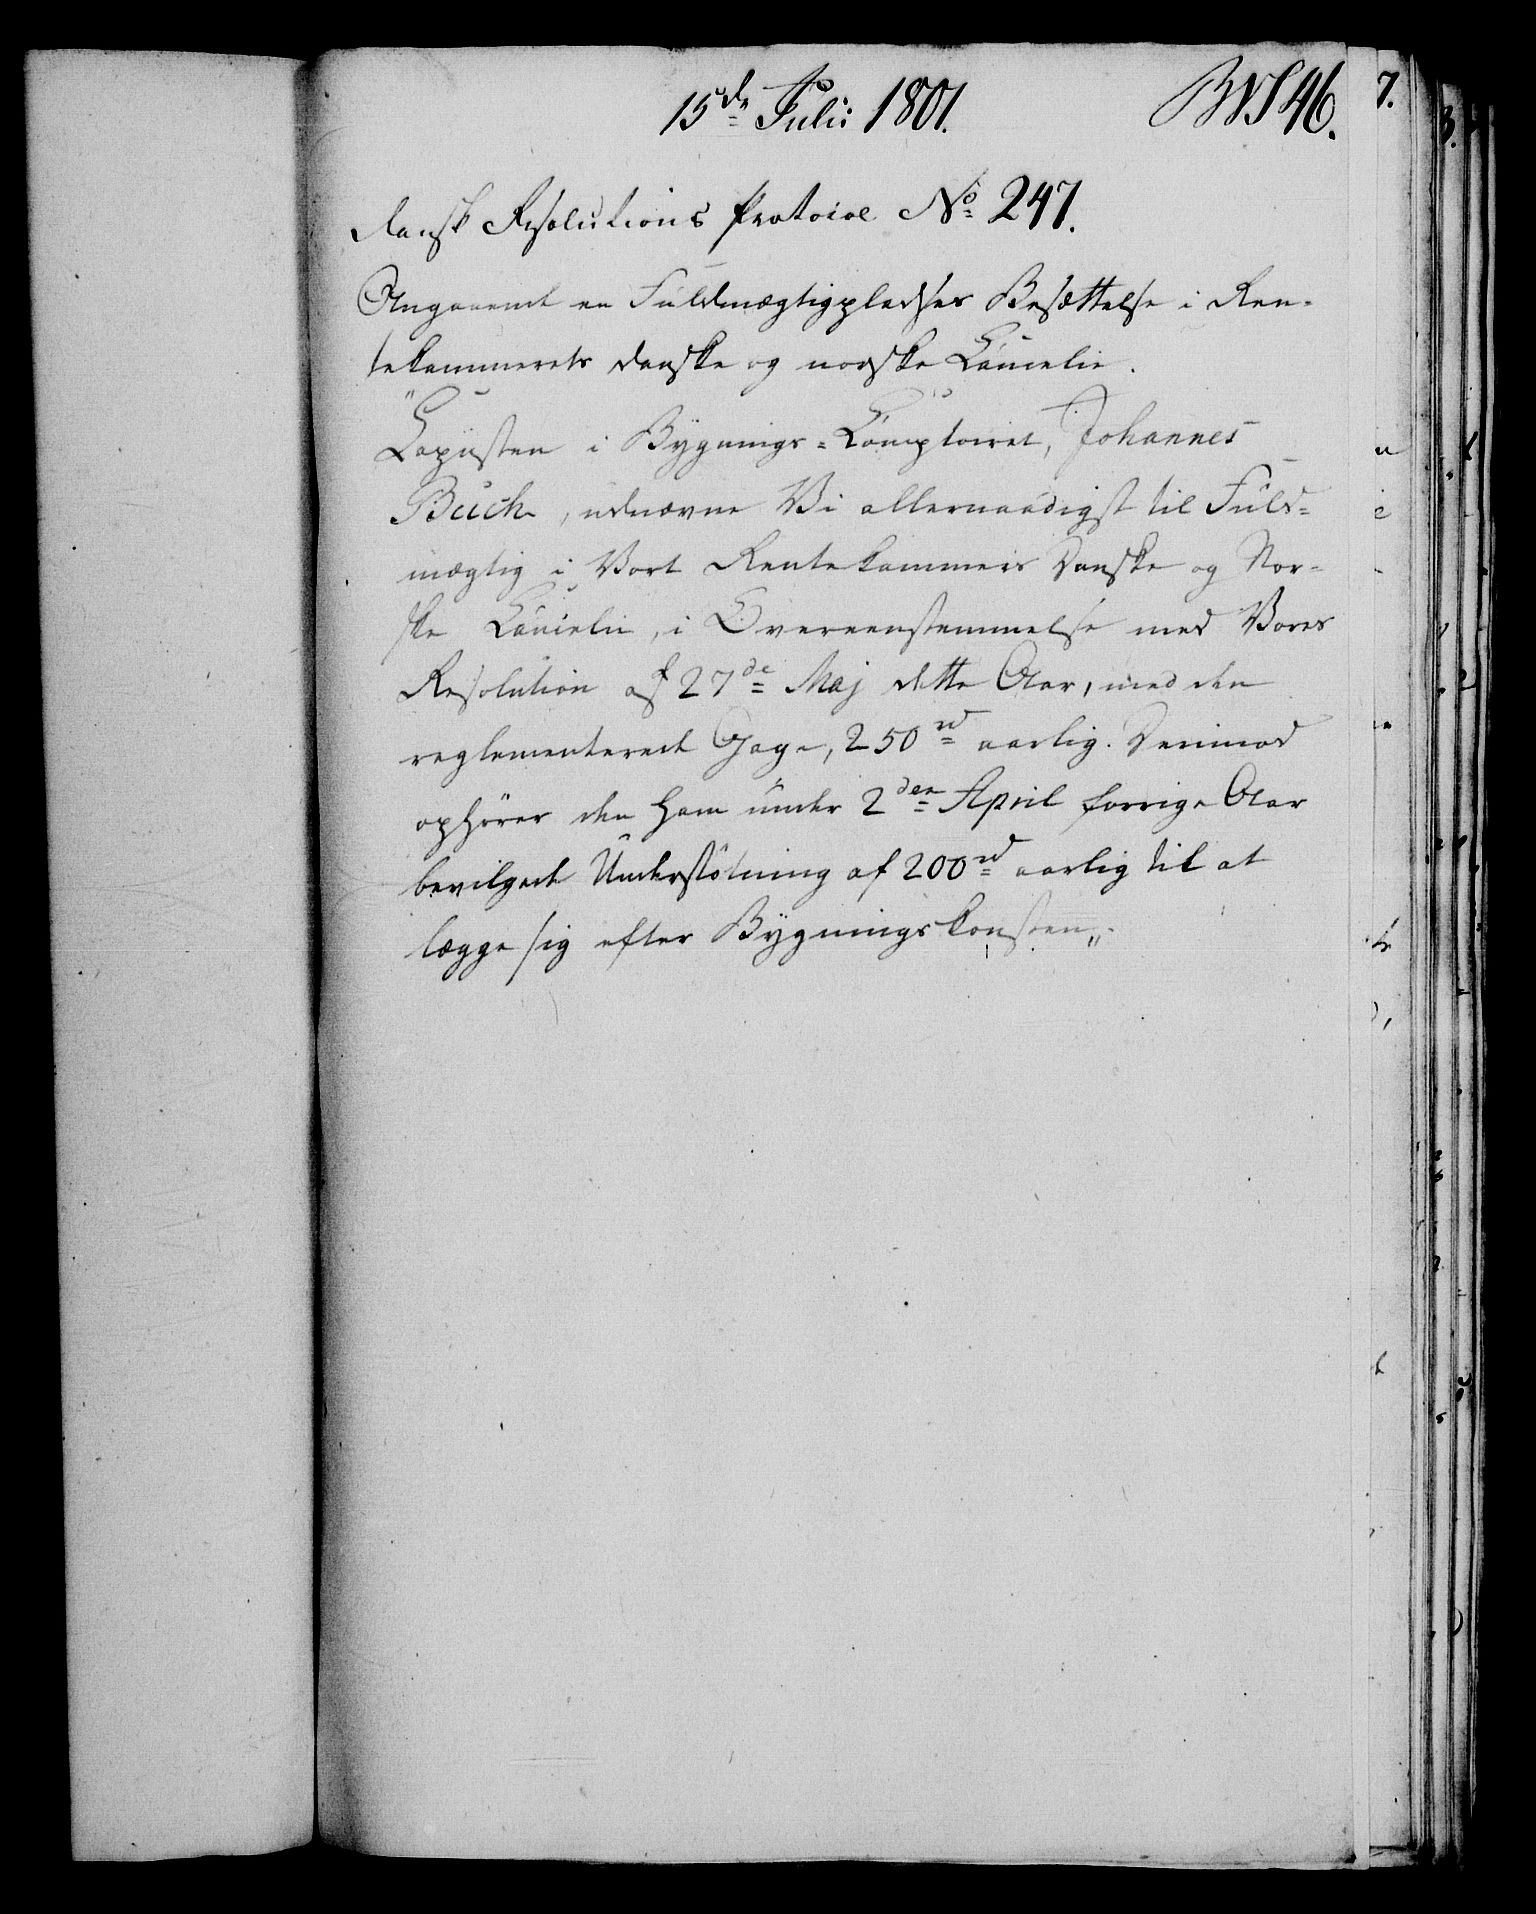 15de Julii 1801. BNS 46.
Dansk Resolutions Protocol No 247.
Angaaende en Fuldmægtigpladses Besættelse i Ren-
tekammerets danske og norske Cancelie.
"Copiisten i Bygnings-Comptoiret, Johannes
Buch, udnævne Vi allernaadigst til Fuld-
mægtig i Vort Rentekammers Danske og Nor-
ske Cancelie, i Overeensstemmelse med Vores
Resolution af 27de Maj dette Aar, med den
reglementerede Gage, 250 rd aarlig. Derimod
ophører den ham under 2den April forrige Aar
bevilgede Understøtning af 200 rd aarlig til at
lægge sig efter Bygningskonsten".
7.